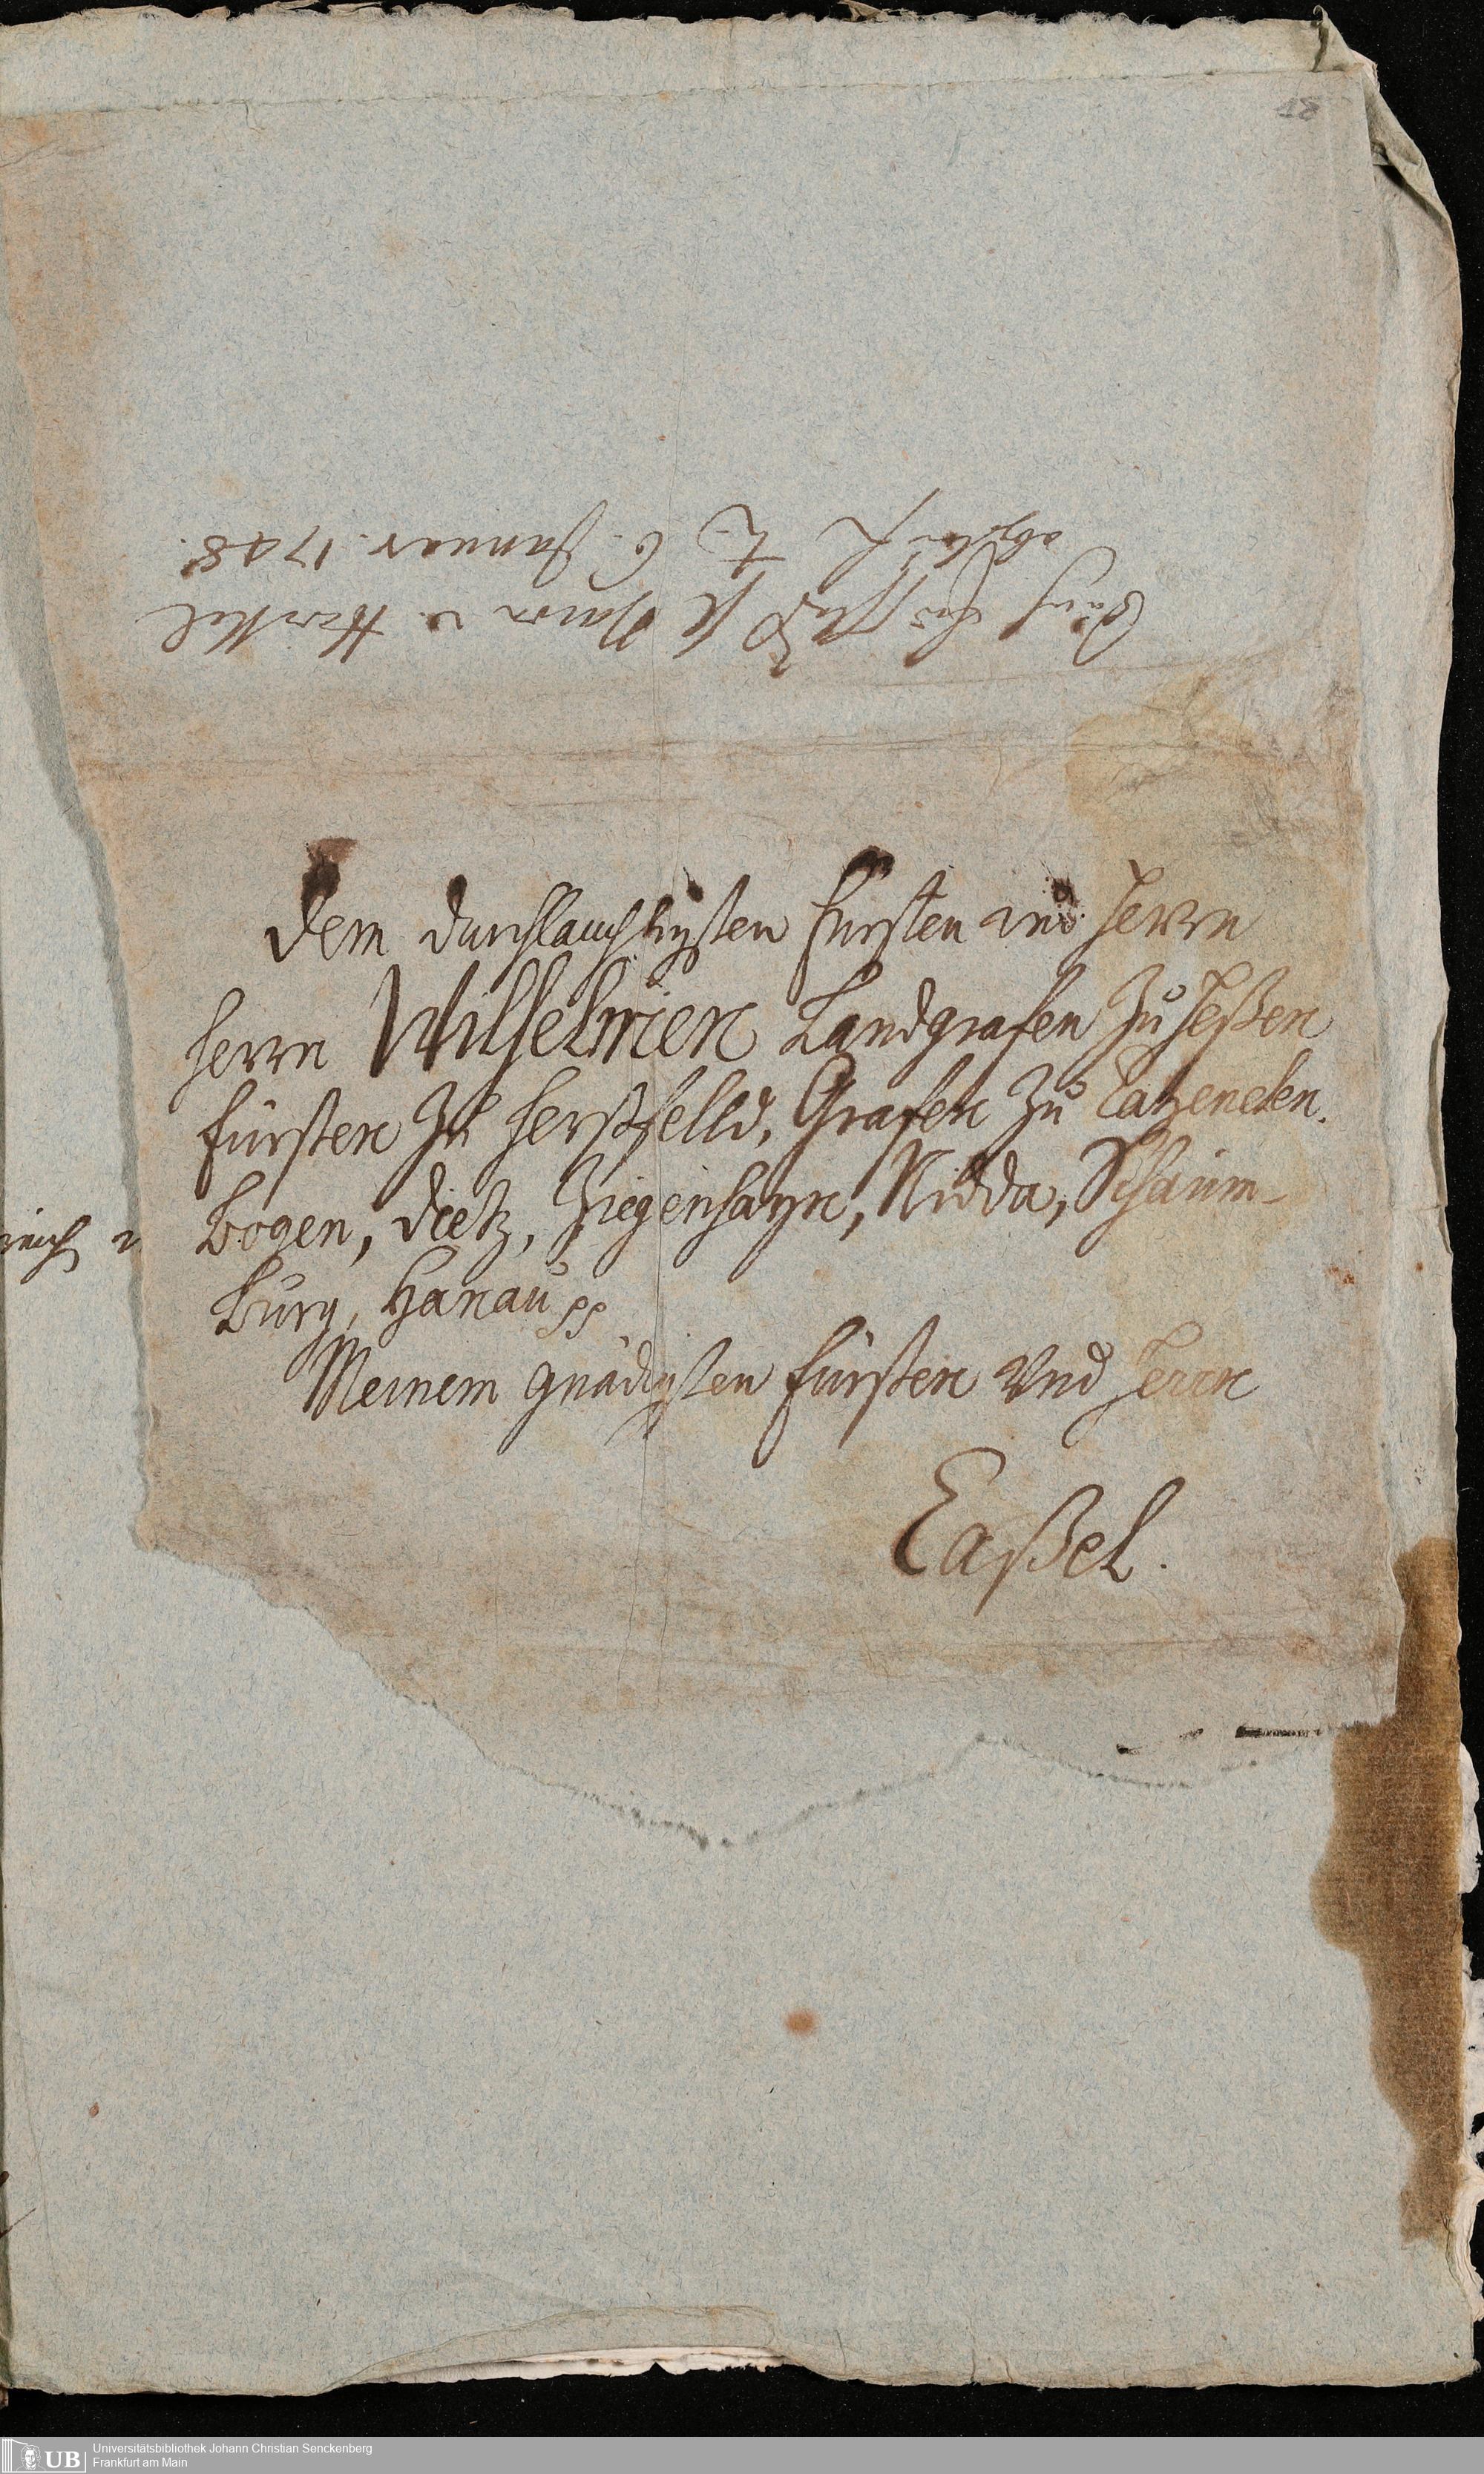 18
abgeben d. 6. Januar. 1748.
Durch v. Herttel
Dem Durchlauchtigsten Fürsten und Herrn
Herrn Wilhelmen Landgrafen Zu Heßen
Fürsten Zu Herßfelld, Grafen Zu Catzenelen.
Bogen, Dietz, Ziegenhayn, Nidda, Schaum-
Burg, Hanau pp
Meinem gnädigsten Fürsten Und Herrn
Caßel.
UB
Universitätsbibliothek Johann Christian Senckenberg
Frankfurt am Main